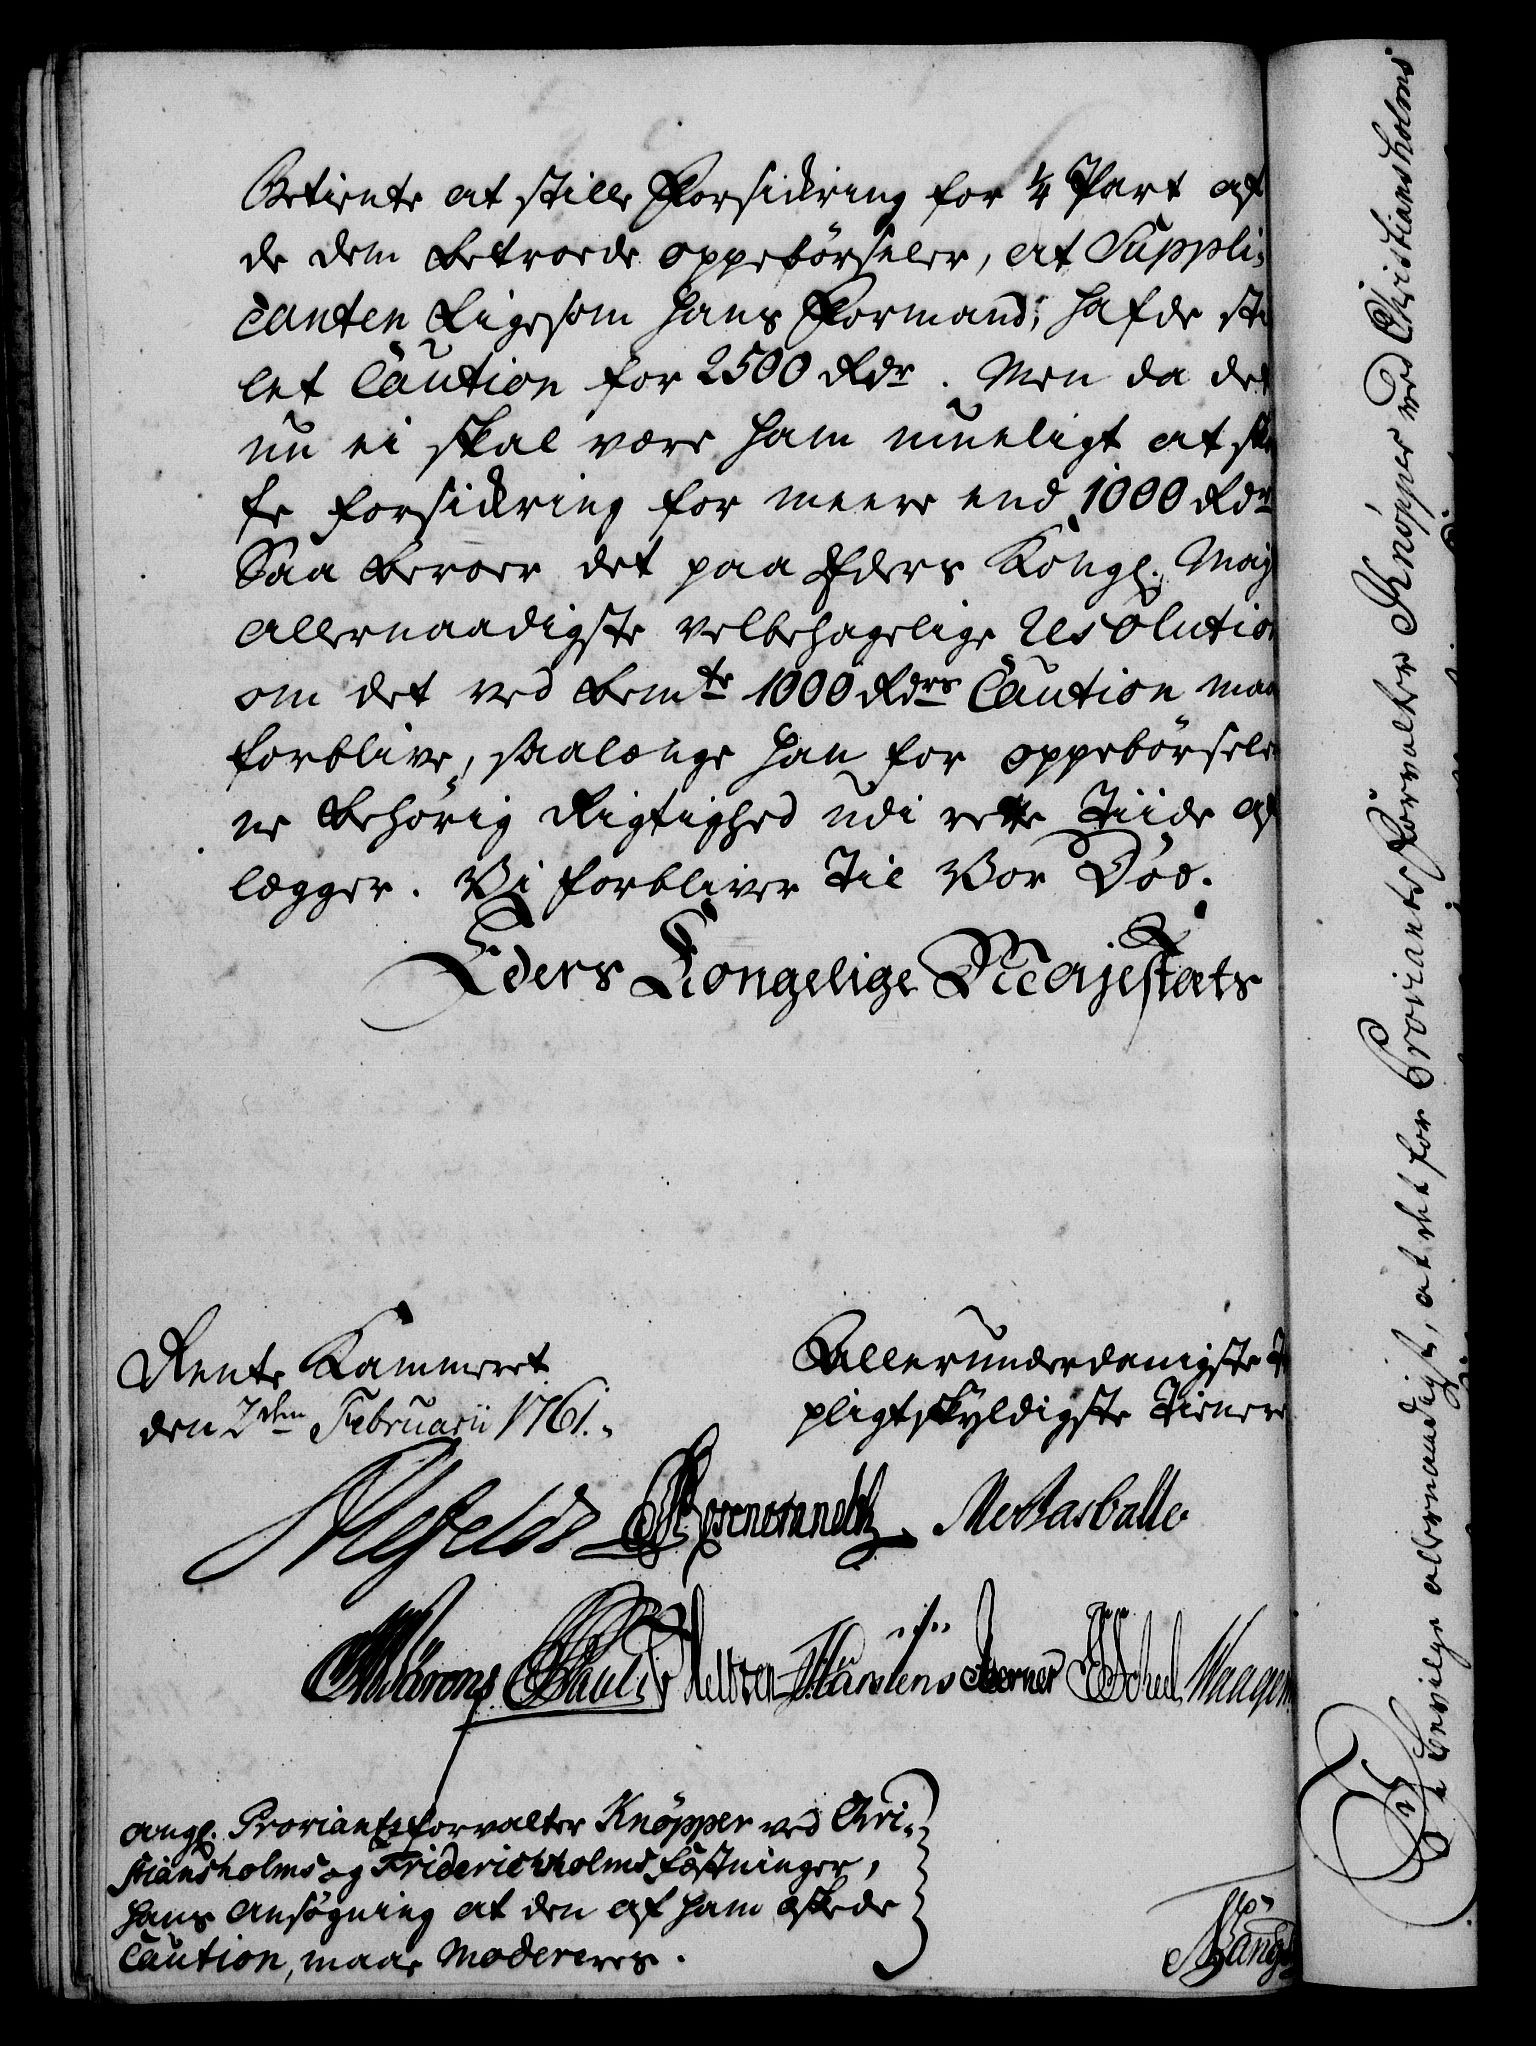 Betiente at stille Forsickring for 1/4 Part af
de dem betroede oppebörseler, at Suppli-
canten ligesom hans Formand, hafde stil
let Caution for 2500 Rdr. Men da det
nu ei skal være ham mueligt at skaf
fe forsickring for meere end 1000 Rdr
Saa beroer det paa Eders Kongl. Mayts
allernaadigste velbehagelige Resolution
om det ved bemte 1000 Rdrs Caution maa
forblive, saalænge han for oppebörseler
ne behörig Rigtighed udi rette Tiide af
lægger. Vi forbliver til Vor Död.
Eders Kongelige Majestæts
Rente Kammeret
den 7den Februarii 1761.
Allerunderdanigste
pligtskyldigste Tienere
Ahlefeldt Rosencrandtz
Pauli Neltzen Karstens Berner Scheel Waagen
angl. Proviantsforvalter Knöpper ved Chri-
stiansholms og Friderichsholms Fæstninger,
hans ansögning at den af ham æskede
Caution, maae Modereres.
Vi bevilge allernaadigst, at det for Proviants Forvalter Knöpper ved Christiansholms